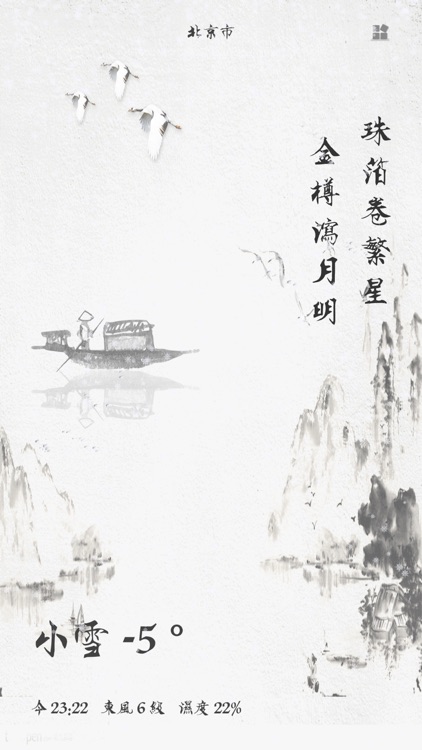 北京市
珠箔卷繁星
金樽瀉月明
小雪 -5°
今 23:22 東風 6 級 濕度 22%